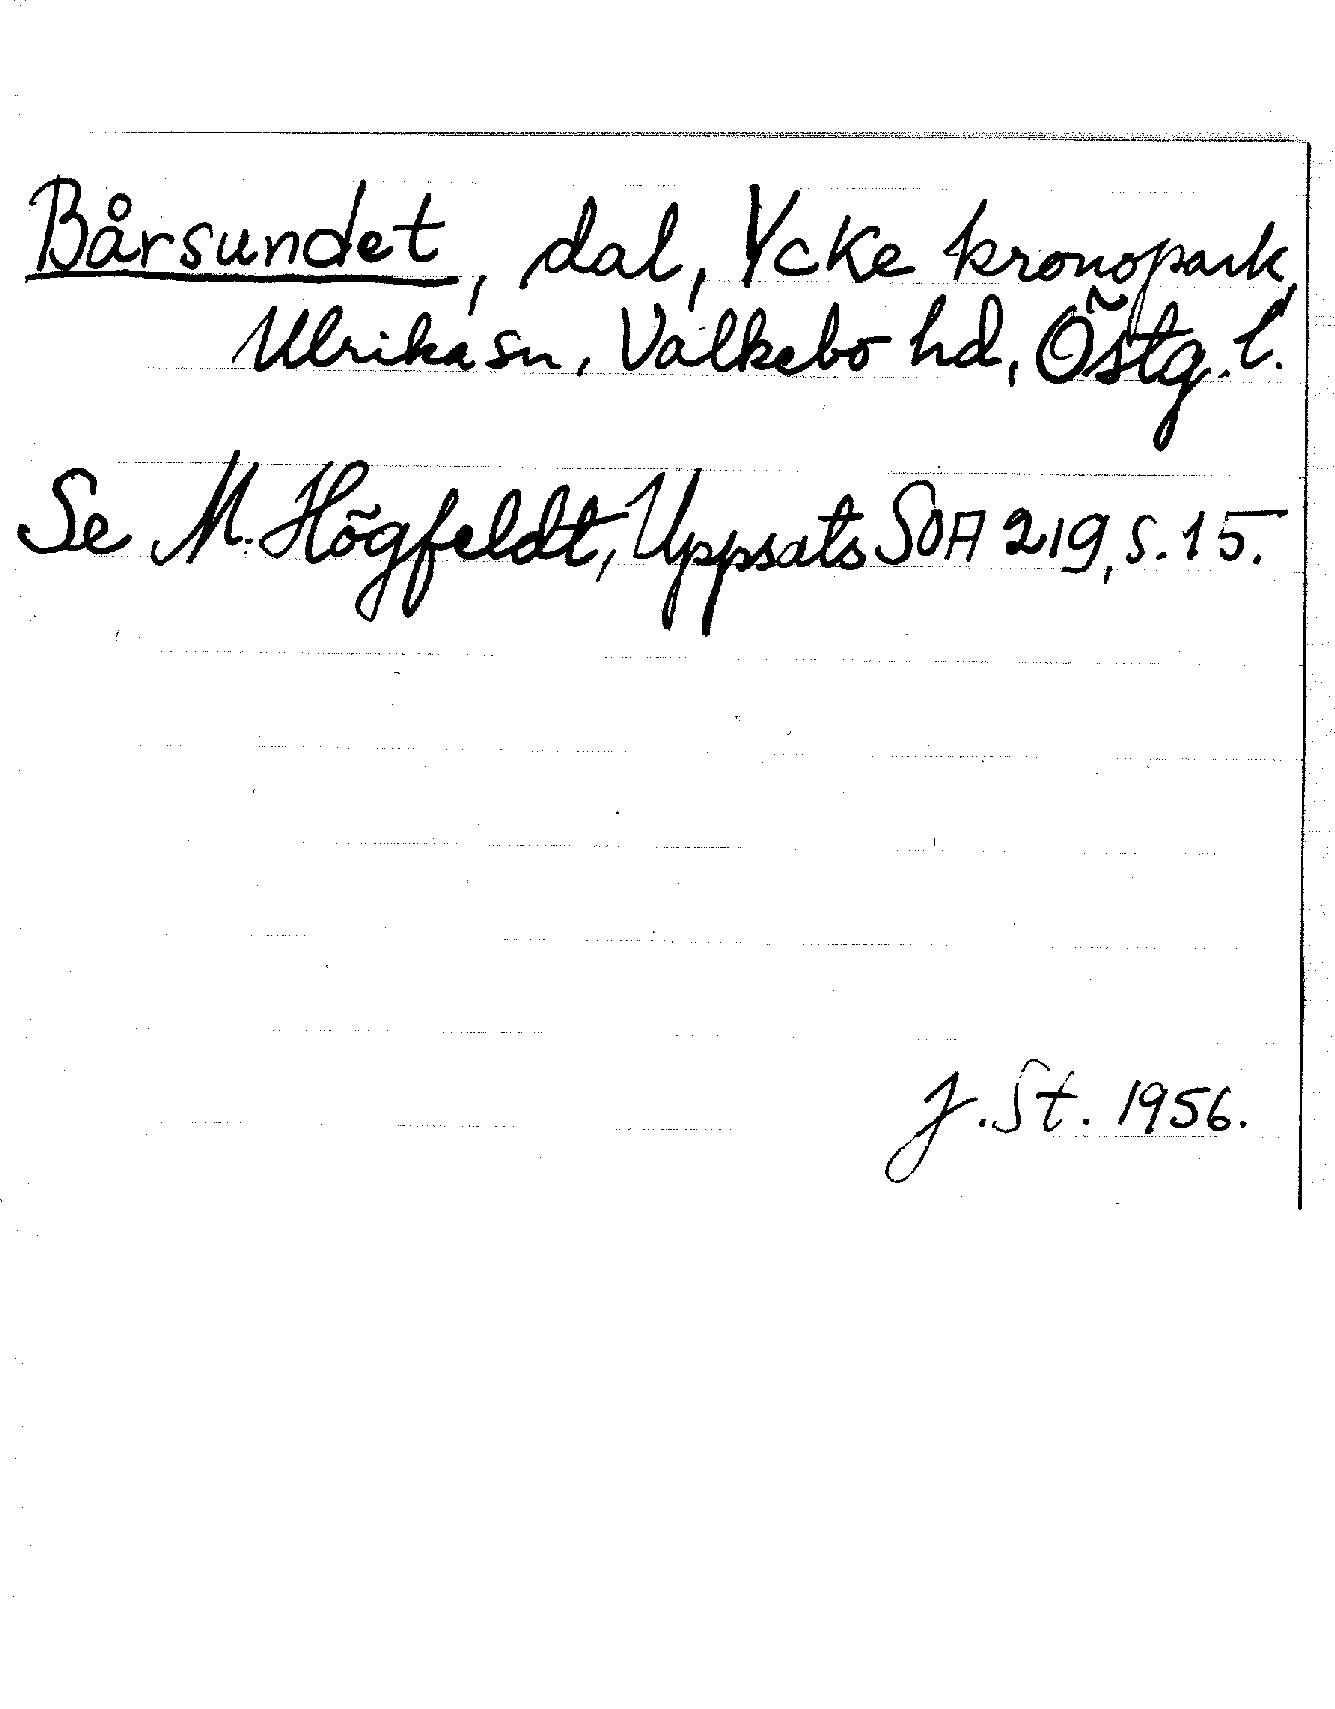 Bårsundet, dal, Ycke kronopark,
Ulrika sn, Valkebo hd, Östg. l.
Se M. Högfeldt, Uppsats SOA 219, s. 15.
J. St. 1956.